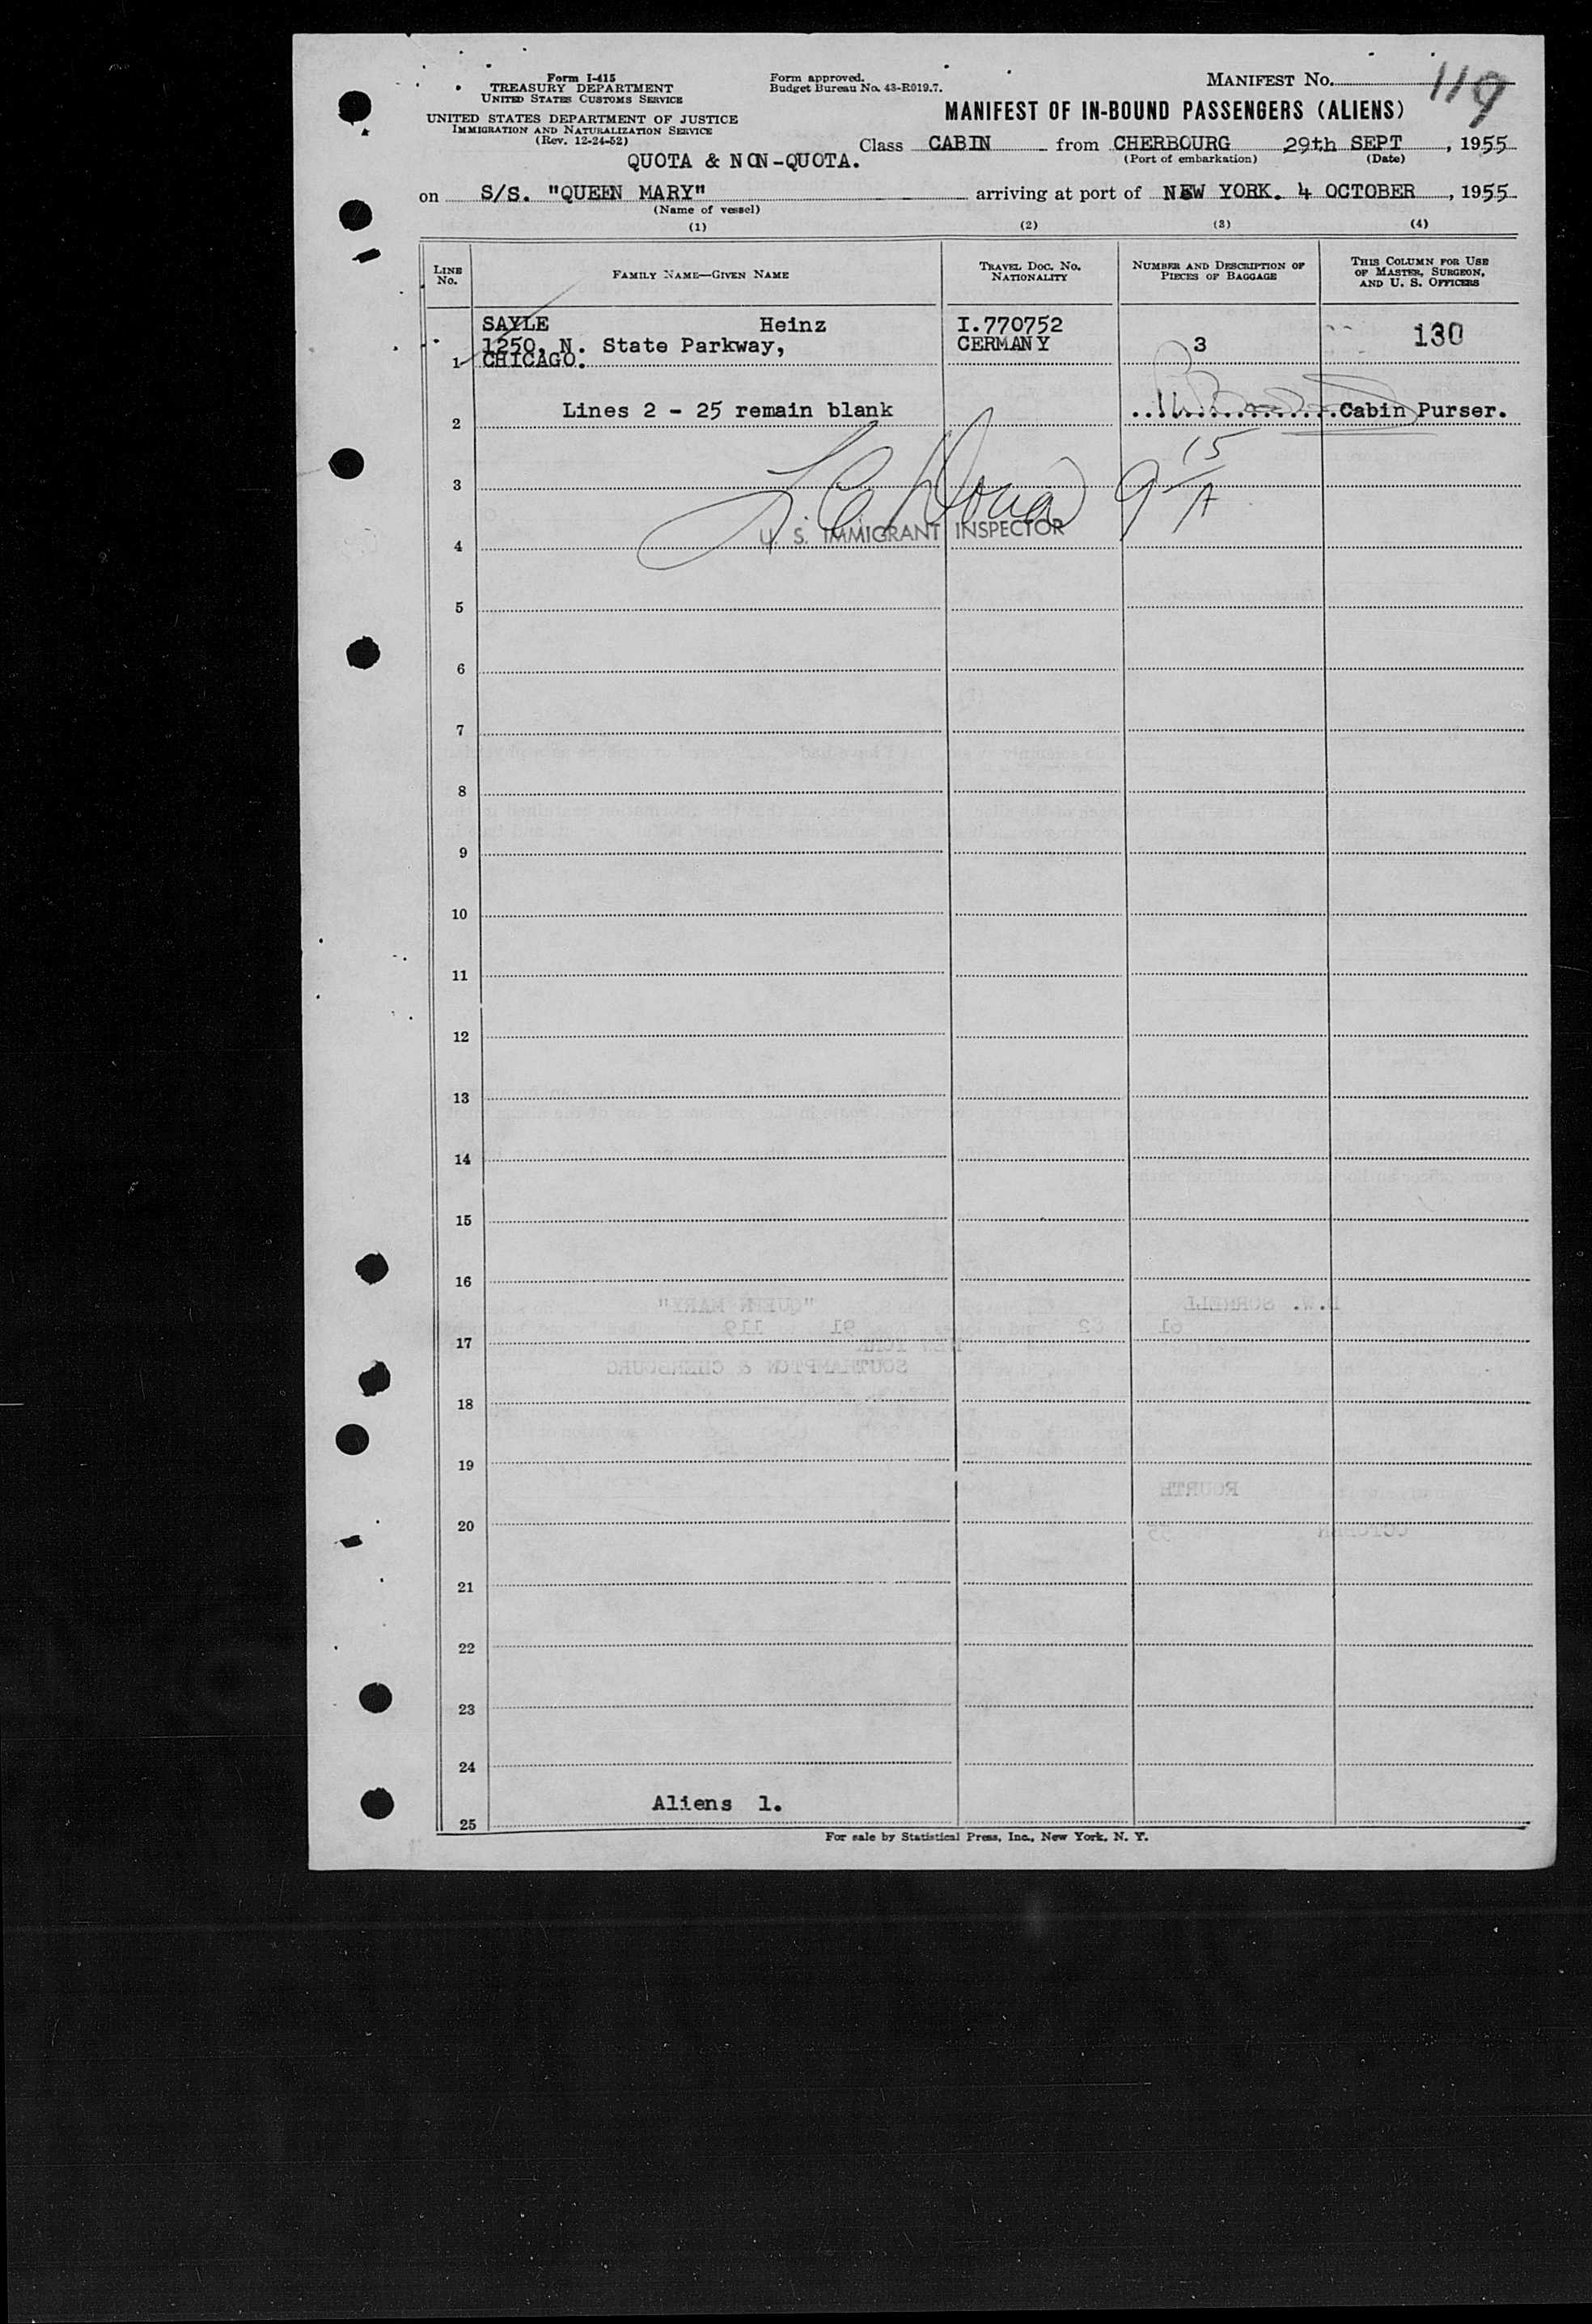 Form I-415
TREASURY DEPARTMENT
UNITED STATES CUSTOMS SERVICE
UNITED STATES DEPARTMENT OF JUSTICE
IMMIGRATION AND NATURALIZATION SERVICE
(Rev. 12-24-52)
Form approved.
Budget Bureau No. 43-R019.7.
MANIFEST No. 119
MANIFEST OF IN-BOUND PASSENGERS (ALIENS)
QUOTA & NON-QUOTA.
Class CABIN from CHERBOURG 29th SEPT, 1955
(Port of embarkation) (Date)
on S/S. "QUEEN MARY" arriving at port of NEW YORK. 4 OCTOBER, 1955
(Name of vessel)
(1) (2) (3) (4)
LINE No. FAMILY NAME—GIVEN NAME TRAVEL DOC. No. NATIONALITY NUMBER AND DESCRIPTION OF PIECES OF BAGGAGE THIS COLUMN FOR USE OF MASTER, SURGEON, AND U. S. OFFICERS
SAYLE Heinz I.770752 130
1250, N. State Parkway, CERMANY 3
1 CHICAGO.
Lines 2 - 25 remain blank Cabin Purser.
2
9 15/A
3
U. S. IMMIGRANT INSPECTOR
4
5
6
7
8
9
10
11
12
13
14
15
16
"QUEEN MARY" SORRELL
61 62 91 119
17
NEW YORK
SOUTHAMPTON & CHERBOURG
18
19
FOURTH
20
OCTOBER 55
21
22
23
24
Aliens 1.
25
For sale by Statistical Press, Inc., New York, N. Y.